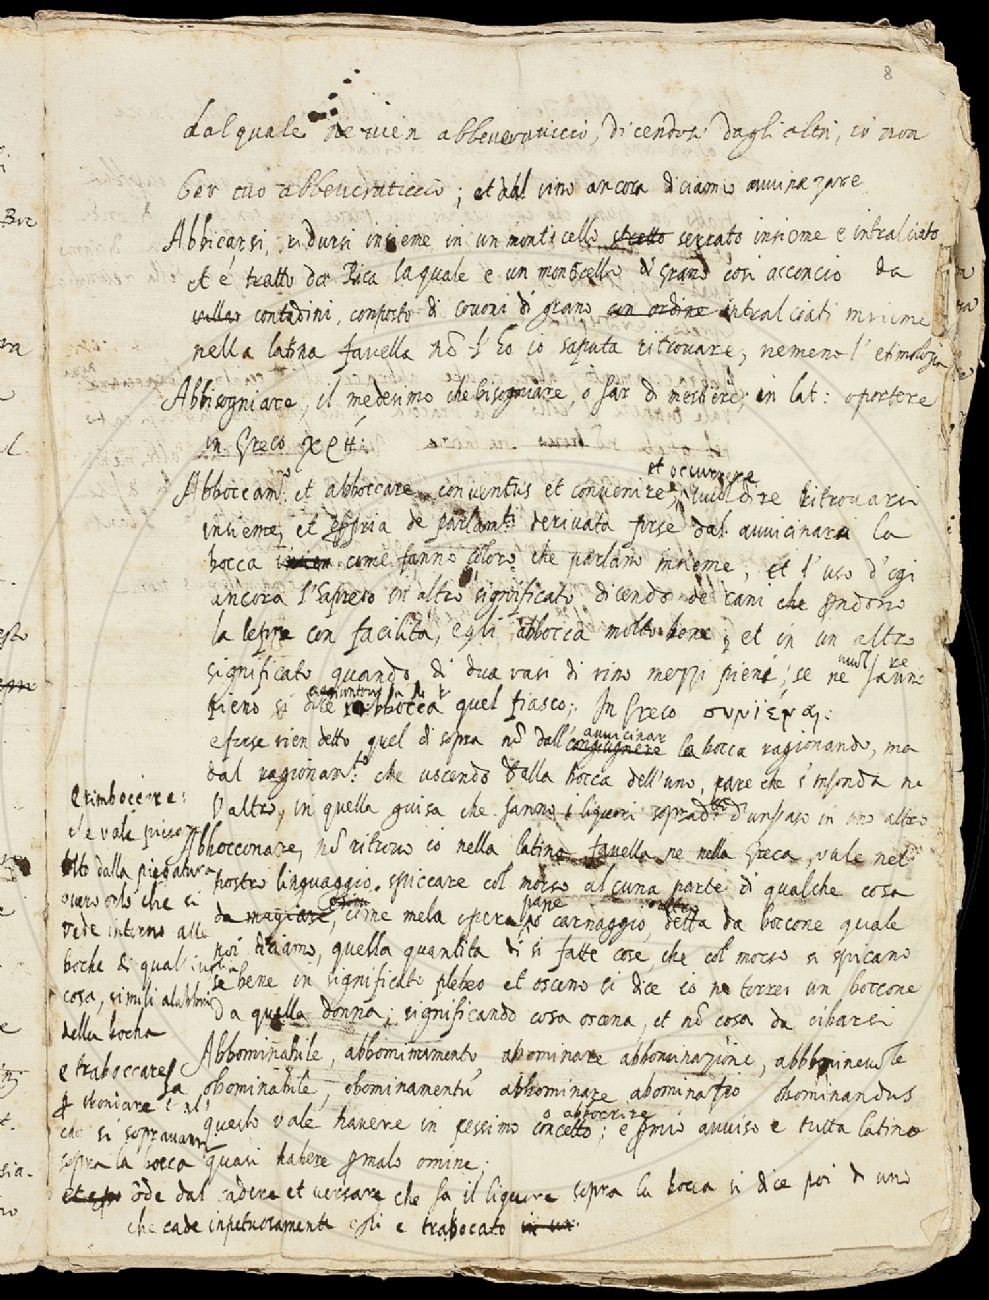 8
dal quale ne vien abbeveraticcio, dicendosi dagli altri, io non
ber tuo abbeveraticcio; et dal vino ancora diciamo avvinazare
Abbicarsi, ridursi insieme in un monticello stretto serrato insieme e intralciato
et é tratto da Bica laquale e un monticello di grano cosi acconcio da
villar contadini, composto di covoni di grano con ordine intralciati insieme
nella latina favella nõ l'ho io saputa ritrovare, nemeno l'etimologia
Abbisogniare, il medesimo che bisogniare, o far di mestiere, in lat: oportere
in Greco χρή:
Abboccam.to et abboccare conventus et convenire, et occurrere vuol dire ritrovarsi
insieme, et de parlam.ti derivata forse dal avvicinarsi la
bocca come fanno coloro che parlano insieme, et l'uso d'ogi
ancora l'ha preso in altro significato dicendo de cani che prendono
la lepre con facilità, egli abbocca molto bene; et in un altro
significato quando di dua vasi di vino mezzi pieni, se ne vuol fare uno
pieno si dice abbocca quel fiasco; In Greco
e forse vien detto quel di sopra nõ dall'congiugnere avvicinar la bocca ragionando, ma
dal ragionam.to che uscendo della bocca dell'uno, pare che s'infonda ne
l'altro, in quella guisa che fanno i liquori sopradetti d'un vaso in uno altro
Abbocconare, nõ ritrovo io nella latina favella ne nella Greca, vale nel
nostro linguaggio spiccare col morso alcuna parte di qualche cosa
da magiare, come mela pera pane o carnaggio, detta da boccone quale
noi diciamo, quella quantita di si fatte cose, che col morso si spicano
se bene in significato plebeo et osceno si dice io ne torrei un boccone
da quella donna; significando cosa oscena, et nõ cosa da cibarsi
Abbominabile, abbominamento abominare abbominazione, abbominevole
abominabile, abominamentũ abhominare abominatio abominandus
questo vale havere in pessimo concetto o abborrire; e mio avviso e tutta latina
quasi habere malo omine;
e rimboccare:
che vale
dalla piegatura
overo orlo che si
vede intorno alle
boche di qual
cosa, simili alabbri
della bocha
e traboccare
che si
sopra la bocca
õde dal cadere et versare che fa il liquore sopra la bocca si dice poi di uno
che cade inpetuosamente egli e trabocato in un